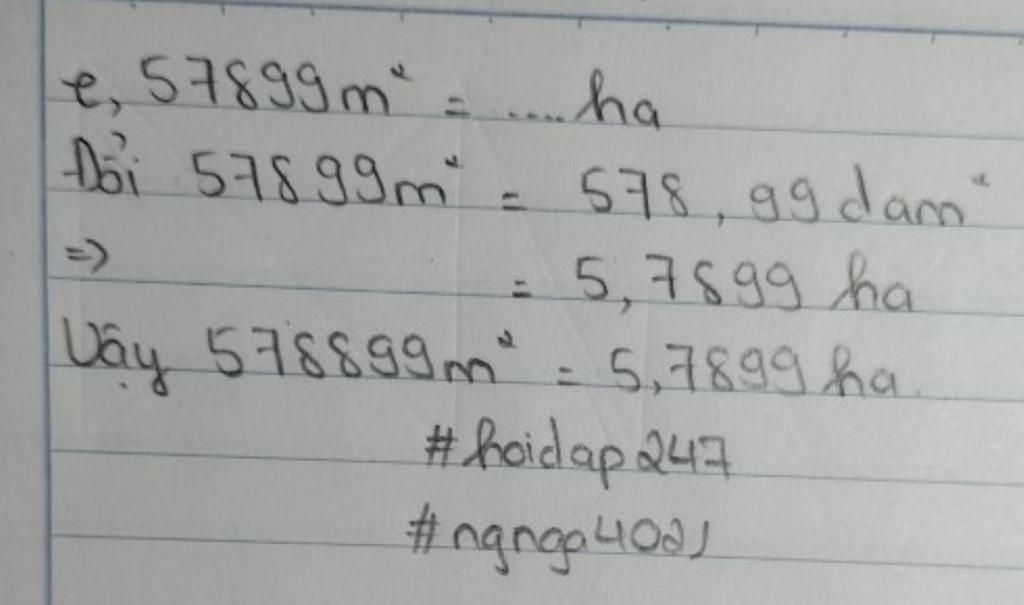 e, 57899m² = .... ha
Đổi 57899m² = 578,99dam²
=> = 5,7899 ha
Vậy 578899m² = 5,7899 ha.
#hoidap247
#ngnga4021